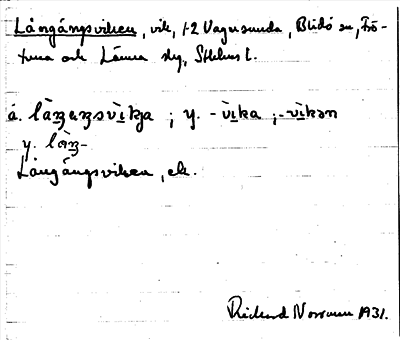 Långängsviken, vik, 1-2 Vagnsunda, Blidö sn, Frö-
tuna och Länna skg, Sthlms l.
á. làŋₑŋsvìkja ; y. -vìka ; -vìkən
y. làŋ-
Långängsviken, ek.
Richard Norrman 1931.